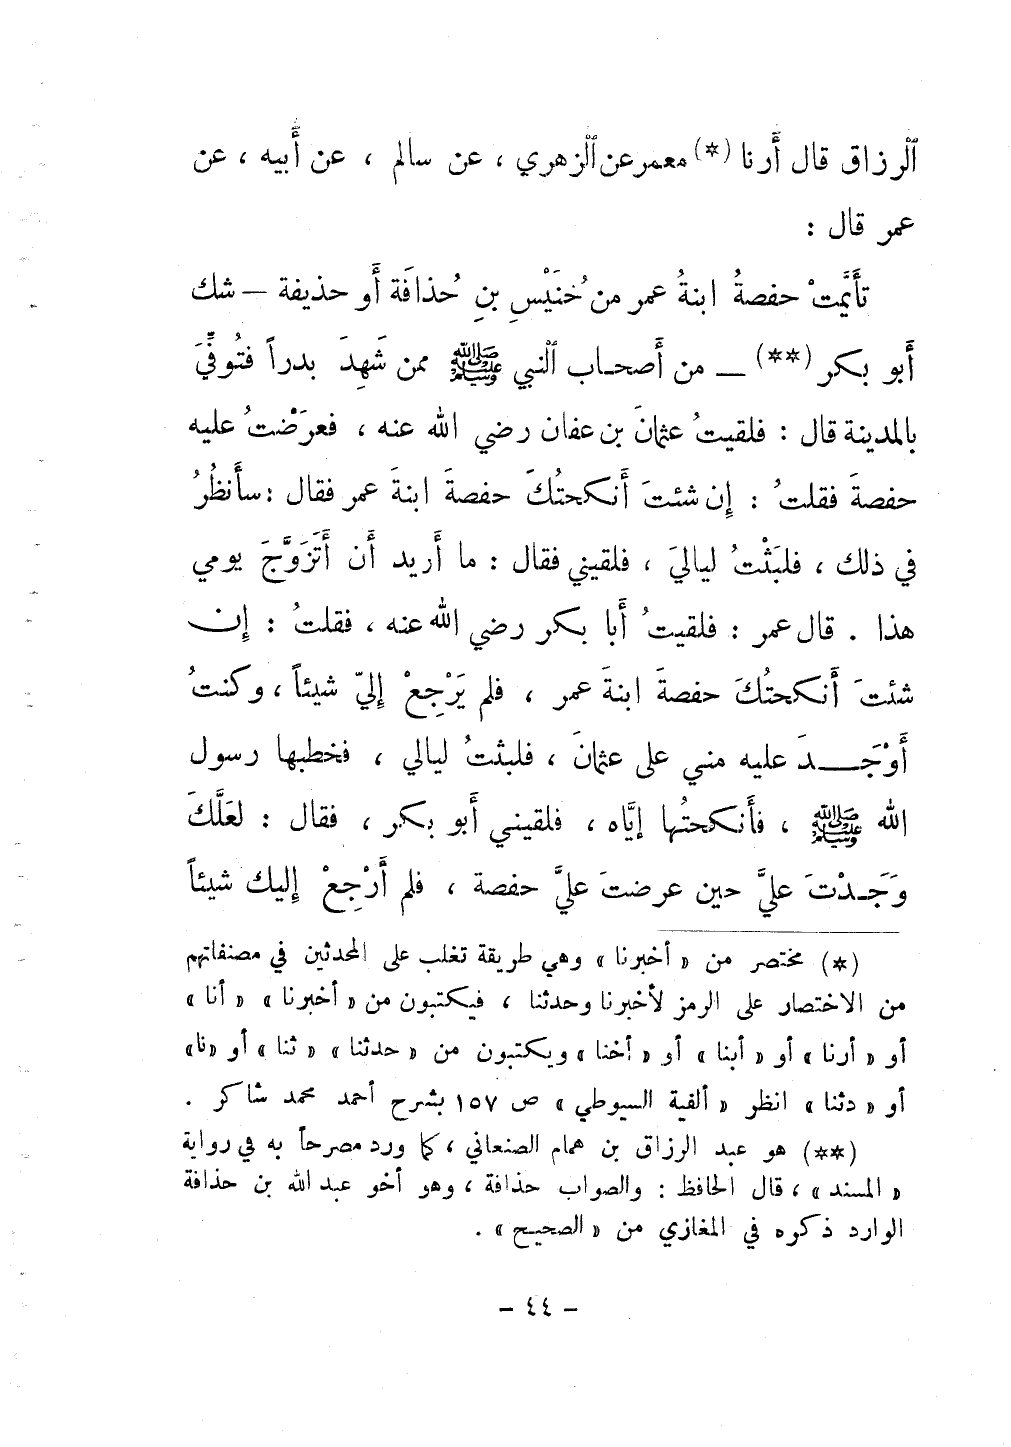 ٱلرزاق قال أَرنا (*) معمر عن ٱلزهري ، عن سالم ، عن أَبيه ، عن
عمر قال :
تأَيَّمتْ حفصةُ ابنةُ عمر من خُنَيْسِ بنِ حُذافَة أَو حذيفة — شك
أَبو بكر (**) — من أَصحاب ٱلنبي ﷺ ممن شَهِدَ بدراً فتُوفِّيَ
بالمدينة قال : فلقيتُ عثمانَ بن عفان رضي الله عنه ، فعرَضْتُ عليه
حفصةَ فقلتُ : إِن شئتَ أَنكحتُكَ حفصةَ ابنةَ عمر فقال : سأَنظُرُ
في ذلك ، فلبَثْتُ لياليَ ، فلقيني فقال : ما أَريد أَن أَتَزَوَّجَ يومي
هذا . قال عمر : فلقيتُ أَبا بكر رضي الله عنه ، فقلتُ : إِن
شئتَ أَنكحتُكَ حفصةَ ابنةَ عمر ، فلم يَرْجِعْ إِليّ شيئاً ، وكنتُ
أَوْجَدَ عليه مني على عثمانَ ، فلبثتُ ليالي ، فخطبها رسول
الله ﷺ ، فأَنكحتُها إِيَّاه ، فلقيني أَبو بكر ، فقال : لعَلَّكَ
وَجَدْتَ عليَّ حين عرضتَ عليَّ حفصة ، فلم أَرْجِعْ إِليك شيئاً
(*) مختصر من « أخبرنا » وهي طريقة تغلب على المحدثين في مصنفاتهم
من الاختصار على الرمز لأخبرنا وحدثنا ، فيكتبون من « أخبرنا » « أنا »
أو « أرنا » أو « أبنا » أو « أخنا » ويكتبون من « حدثنا » « ثنا » أو «نا»
أو « دثنا » انظر « ألفية السيوطي » ص ١٥٧ بشرح أحمد محمد شاكر .
(**) هو عبد الرزاق بن همام الصنعاني ، كما ورد مصرحاً به في رواية
« المسند » ، قال الحافظ : والصواب حذافة ، وهو أخو عبد الله بن حذافة
الوارد ذكره في المغازي من « الصحيح » .
– ٤٤ –